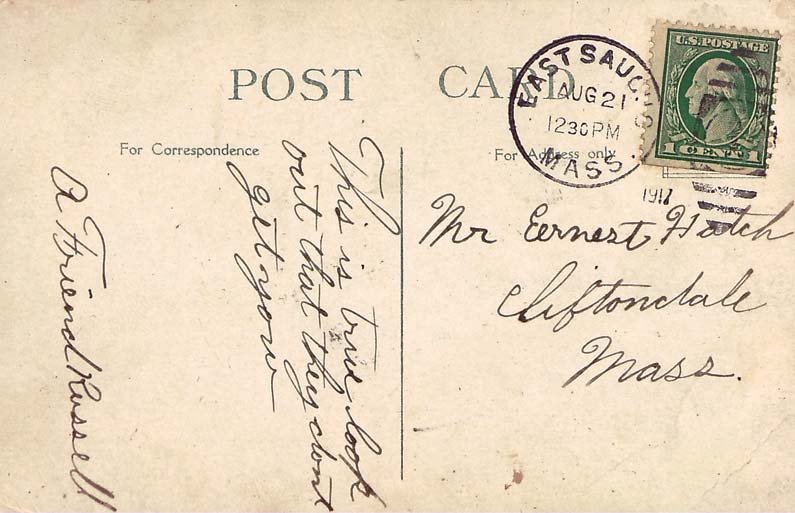 POST CARD
For Correspondence
For Address only
EAST SAUGUS
AUG 21
1230 PM
MASS.
1917
U.S. POSTAGE
1 CENT 1
This is true look
out that they dont
get you
A Friend Russell
Mr Eernest Hatch
Cliftondale
Mass.